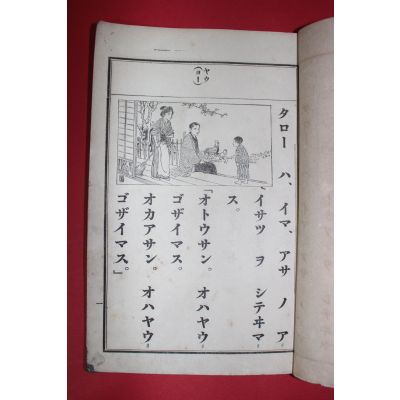 ヤウ
(ヨー)
タロー ハ、イマ、アサ ノ ア=
イサツ ヲ シテヰマ=
ス。
「オトウサン。 オハヤウ=
ゴザイマス。
オカアサン。 オハヤウ=
ゴザイマス。」